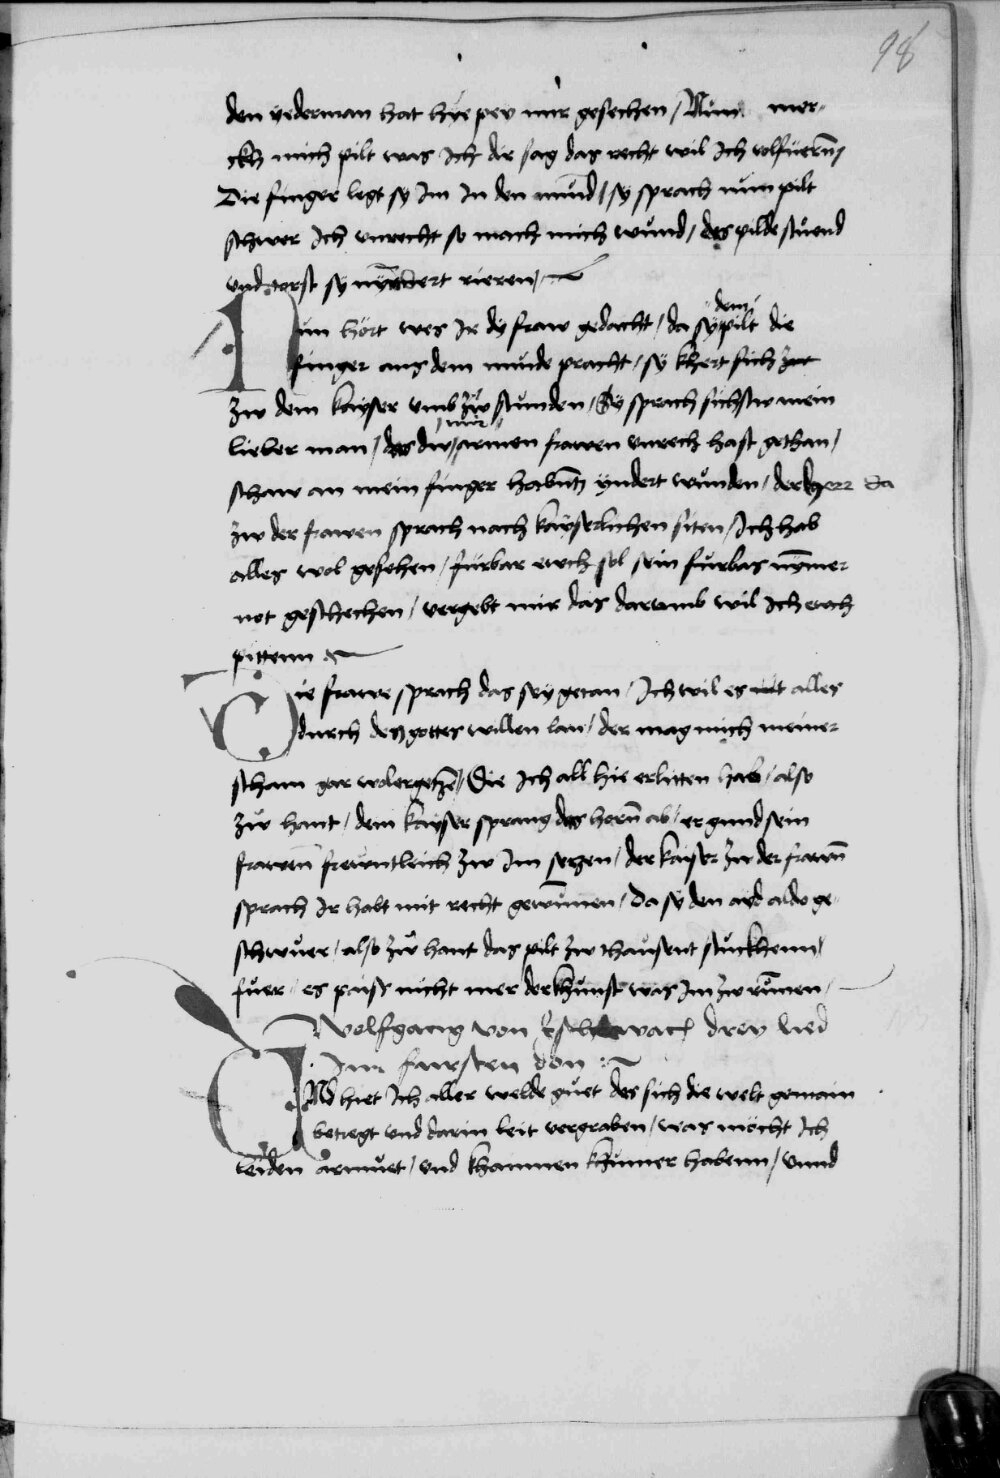 98
den yederman hat hye pey mir gesechen / Nun mer-
ckh mich pilt was Ich dir sag das recht wil Ich volfüern /
Die finger legt sy Im In den mund / sy sprach nun pilt
schwer Ich unrecht so mach mich wund / des pilde stuend
und torst sy rieren /
Nun hört wes Ir dy fraw gedacht / da sy dem pilt die
finger aus dem munde pracht / sy khert sich
zw dem kayser umb zw stunden / Sy sprach sichstw mein
lieber man / das dw mir armen frawen unrech hast gethan /
schaw an mein finger habntz yndert wunden / der herr da
zw der frawen sprach nach kayserlichen siten / Ich hab
alles wol gesehen / fürbar ewch sol sein furbas nymer
not geschechen / vergebt mir das darumb wil Ich ewch
pittenn
Die frawe sprach das sey getan / Ich wil es alles
durch des gottes willen lan / der mag mich meiner
scham gar wol ergetzen / Die Ich all hie erlitten hab / also
zw hant / dem kayser sprang das horn ab / er gund sein
frawen freuntleich zw Im setzen / der kaiser zw der frawn
sprach Ir habt mit recht gewunnen / Da sy den ayd aldo ge-
schwuer / also zw hant das pilt zw thausent stuckhenn /
fuer / es paiss nicht mer der khunst was Im zw runen /
Wolfgang von drey lied
Im fursten don
Und hiet Ich aller welde guet des sich die welt gemain
betregt und darin leit vergraben / was möcht Ich
leiden armuet / und khainnen khumer habenn / unnd